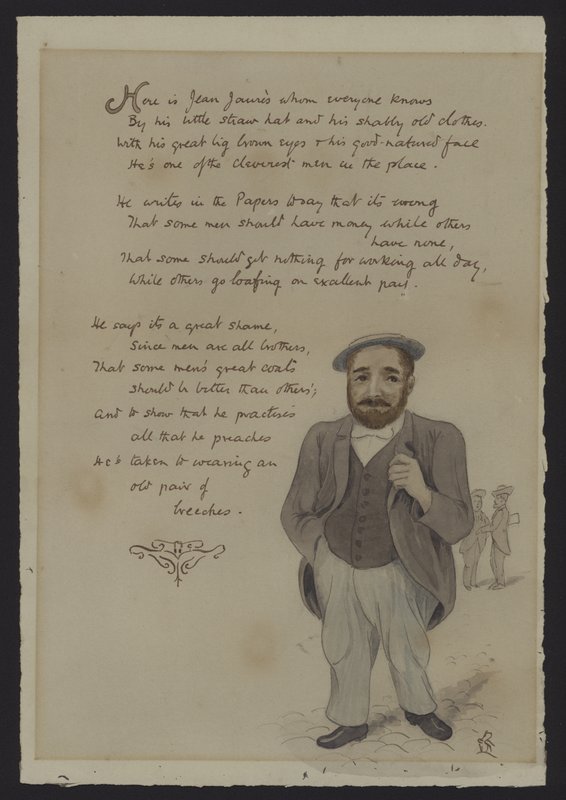 Here is Jean Jaurès whom everyone knows
By his little straw hat and his shabby old clothes.
With his great big brown eyes & his good-natured face
He's one of the cleverest men in the place.
He writes in the Papers to say that it's wrong
That some men should have money while others
have none,
That some should get nothing for working all day,
While others go loafing on excellent pay.
He says it's a great shame,
Since men are all brothers,
That some men's great coats
should be better than others';
And to show that he practises
all that he preaches
He's taken to wearing an
old pair of
breeches.